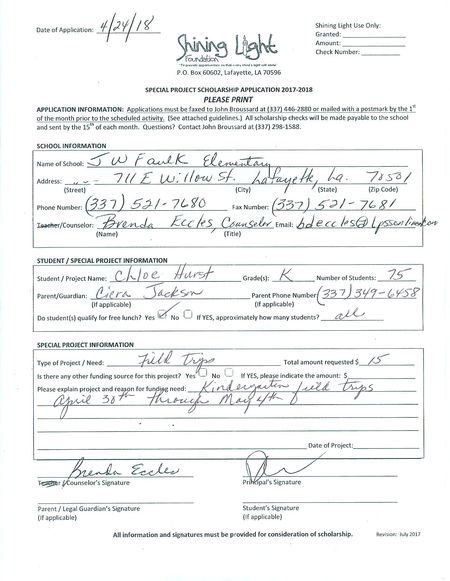 Date of Application: 4/24/18
Shining Light
Foundation
P.O. Box 60602, Lafayette, LA 70596
Shining Light Use Only:
Granted:
Amount:
Check Number:
SPECIAL PROJECT SCHOLARSHIP APPLICATION 2017-2018
PLEASE PRINT
APPLICATION INFORMATION: Applications must be faxed to John Broussard at (337) 446-2880 or mailed with a postmark by the 1st
of the month prior to the scheduled activity. (See attached guidelines.) All scholarship checks will be made payable to the school
and sent by the 15th of each month. Questions? Contact John Broussard at (337) 298-1588.
SCHOOL INFORMATION
Name of School: J W Faulk Elementary
Address: 711 E Willow St. Lafayette, La. 70501
(Street) (City) (State) (Zip Code)
Phone Number: (337) 521-7680 Fax Number: (337) 521-7681
Teacher/Counselor: Brenda Eccles, Counselor Email:
(Name) (Title)
STUDENT / SPECIAL PROJECT INFORMATION
Student / Project Name: Chloe Hurst Grade(s): K Number of Students: 75
Parent/Guardian: Ciera Jackson Parent Phone Number (337) 349-6458
(If applicable) (If applicable)
Do student(s) qualify for free lunch? Yes No If YES, approximately how many students? all
SPECIAL PROJECT INFORMATION
Type of Project / Need: Field Trips Total amount requested $ 15
Is there any other funding source for this project? Yes No If YES, please indicate the amount: $
Please explain project and reason for funding need: Kindergarten field trips
April 30th through May 4th
Date of Project:
Brenda Eccles
Teacher/Counselor's Signature Principal's Signature
Parent / Legal Guardian's Signature Student's Signature
(If applicable) (If applicable)
All information and signatures must be provided for consideration of scholarship. Revision: July 2017